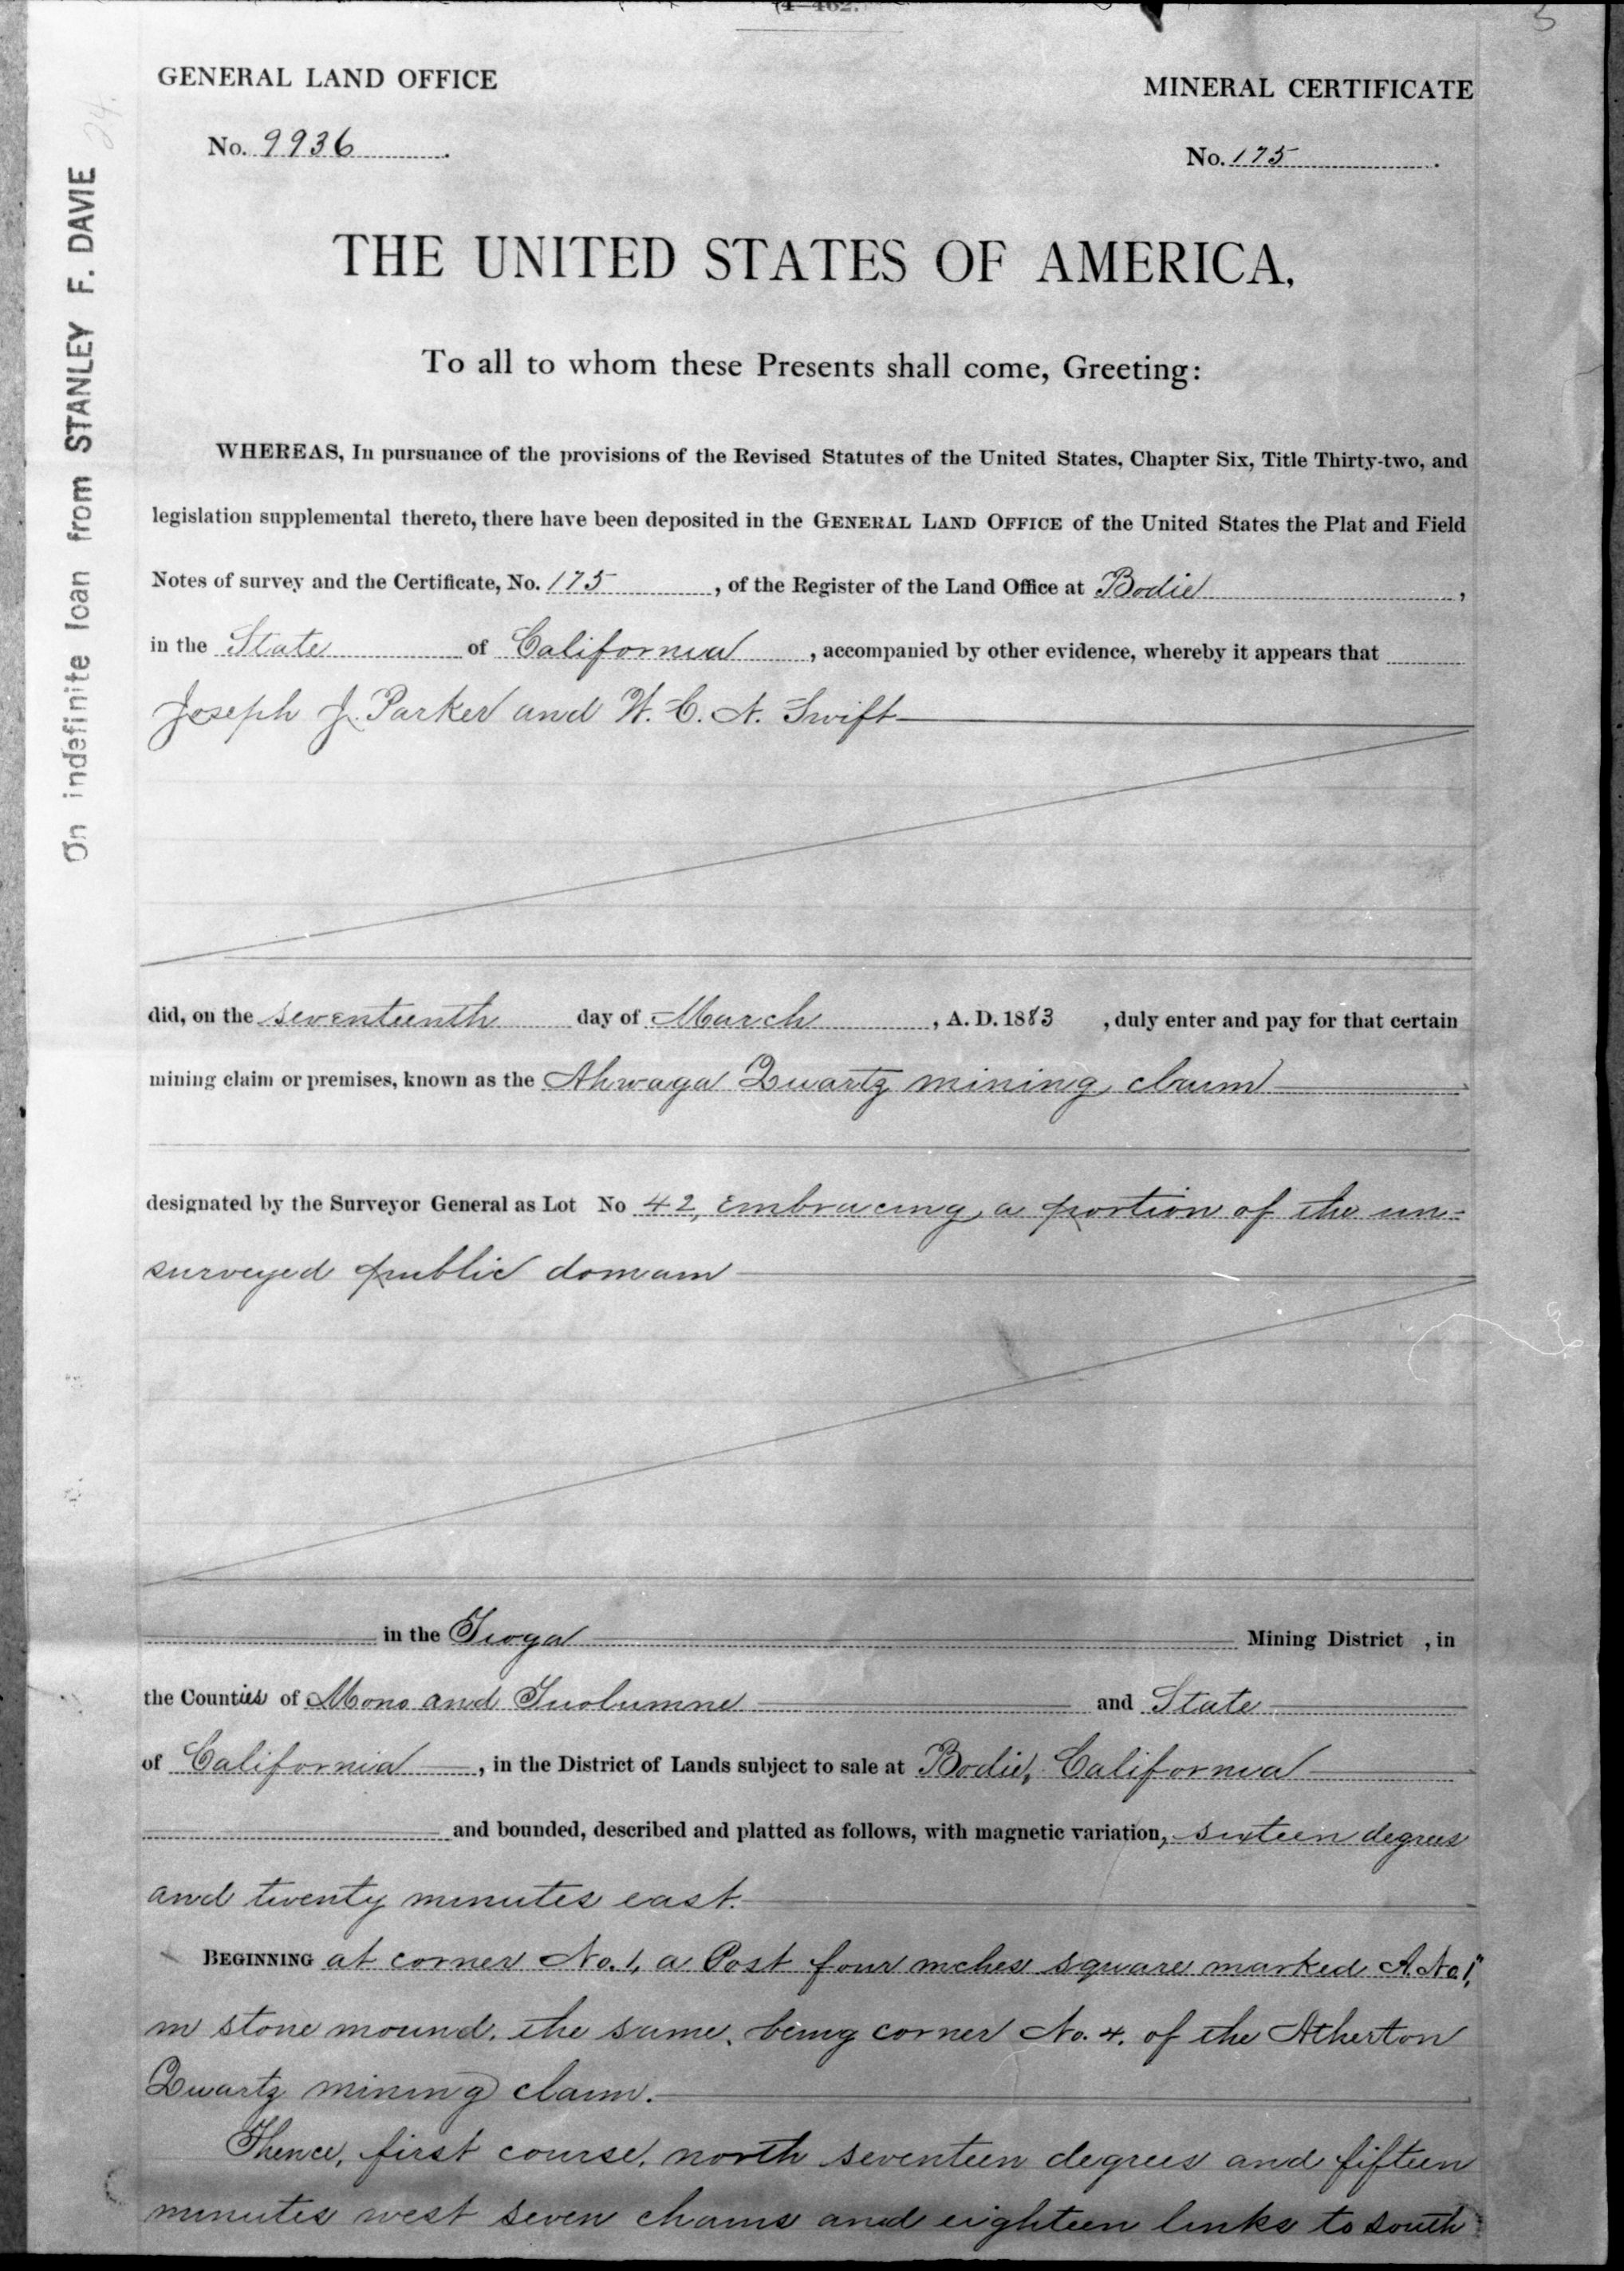 (4—462.
5
GENERAL LAND OFFICE
No. 9936.
MINERAL CERTIFICATE
No. 175.
On indefinite loan from STANLEY F. DAVIE
24.
THE UNITED STATES OF AMERICA,
To all to whom these Presents shall come, Greeting:
WHEREAS, In pursuance of the provisions of the Revised Statutes of the United States, Chapter Six, Title Thirty-two, and
legislation supplemental thereto, there have been deposited in the GENERAL LAND OFFICE of the United States the Plat and Field
Notes of survey and the Certificate, No. 175, of the Register of the Land Office at Bodie,
in the State of California, accompanied by other evidence, whereby it appears that
Joseph J. Parker and W. C. N. Swift
did, on the seventeenth day of March, A. D. 1883, duly enter and pay for that certain
mining claim or premises, known as the Ahwaga Quartz mining claim
designated by the Surveyor General as Lot No 42, embracing a portion of the un-
surveyed public domain
in the Tioga Mining District, in
the Counties of Mono and Tuolumne and State
of California, in the District of Lands subject to sale at Bodie, California
and bounded, described and platted as follows, with magnetic variation, sixteen degrees
and twenty minutes east.
BEGINNING at corner No. 1, a Post four inches square marked A. No. 1,"
in stone mound, the same, being corner No. 4. of the Atherton
Quartz mining claim.
Thence, first course, north seventeen degrees and fifteen
minutes west seven chains and eighteen links to south